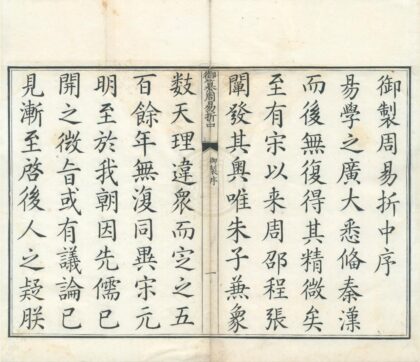 御製周易折中序
易學之廣大悉偹秦漢
而後無復得其精微矣
至有宋以来周邵程張
闡發其奥唯朱子兼象
御纂周易折中
御製序
一
數天理違衆而定之五
百餘年無復同異宋元
明至於我朝因先儒已
開之微㫖或有議論已
見漸至啓後人之疑朕